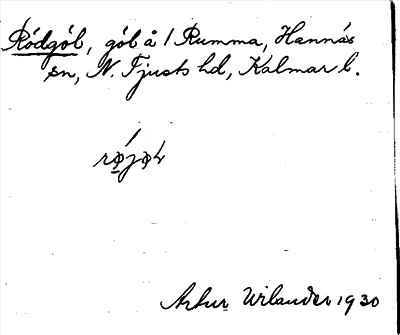 Ródgól, gól å / Rumma, Hannäs
sn, N. Tjusts hd, Kalmar l.
Artur Wilander 1930